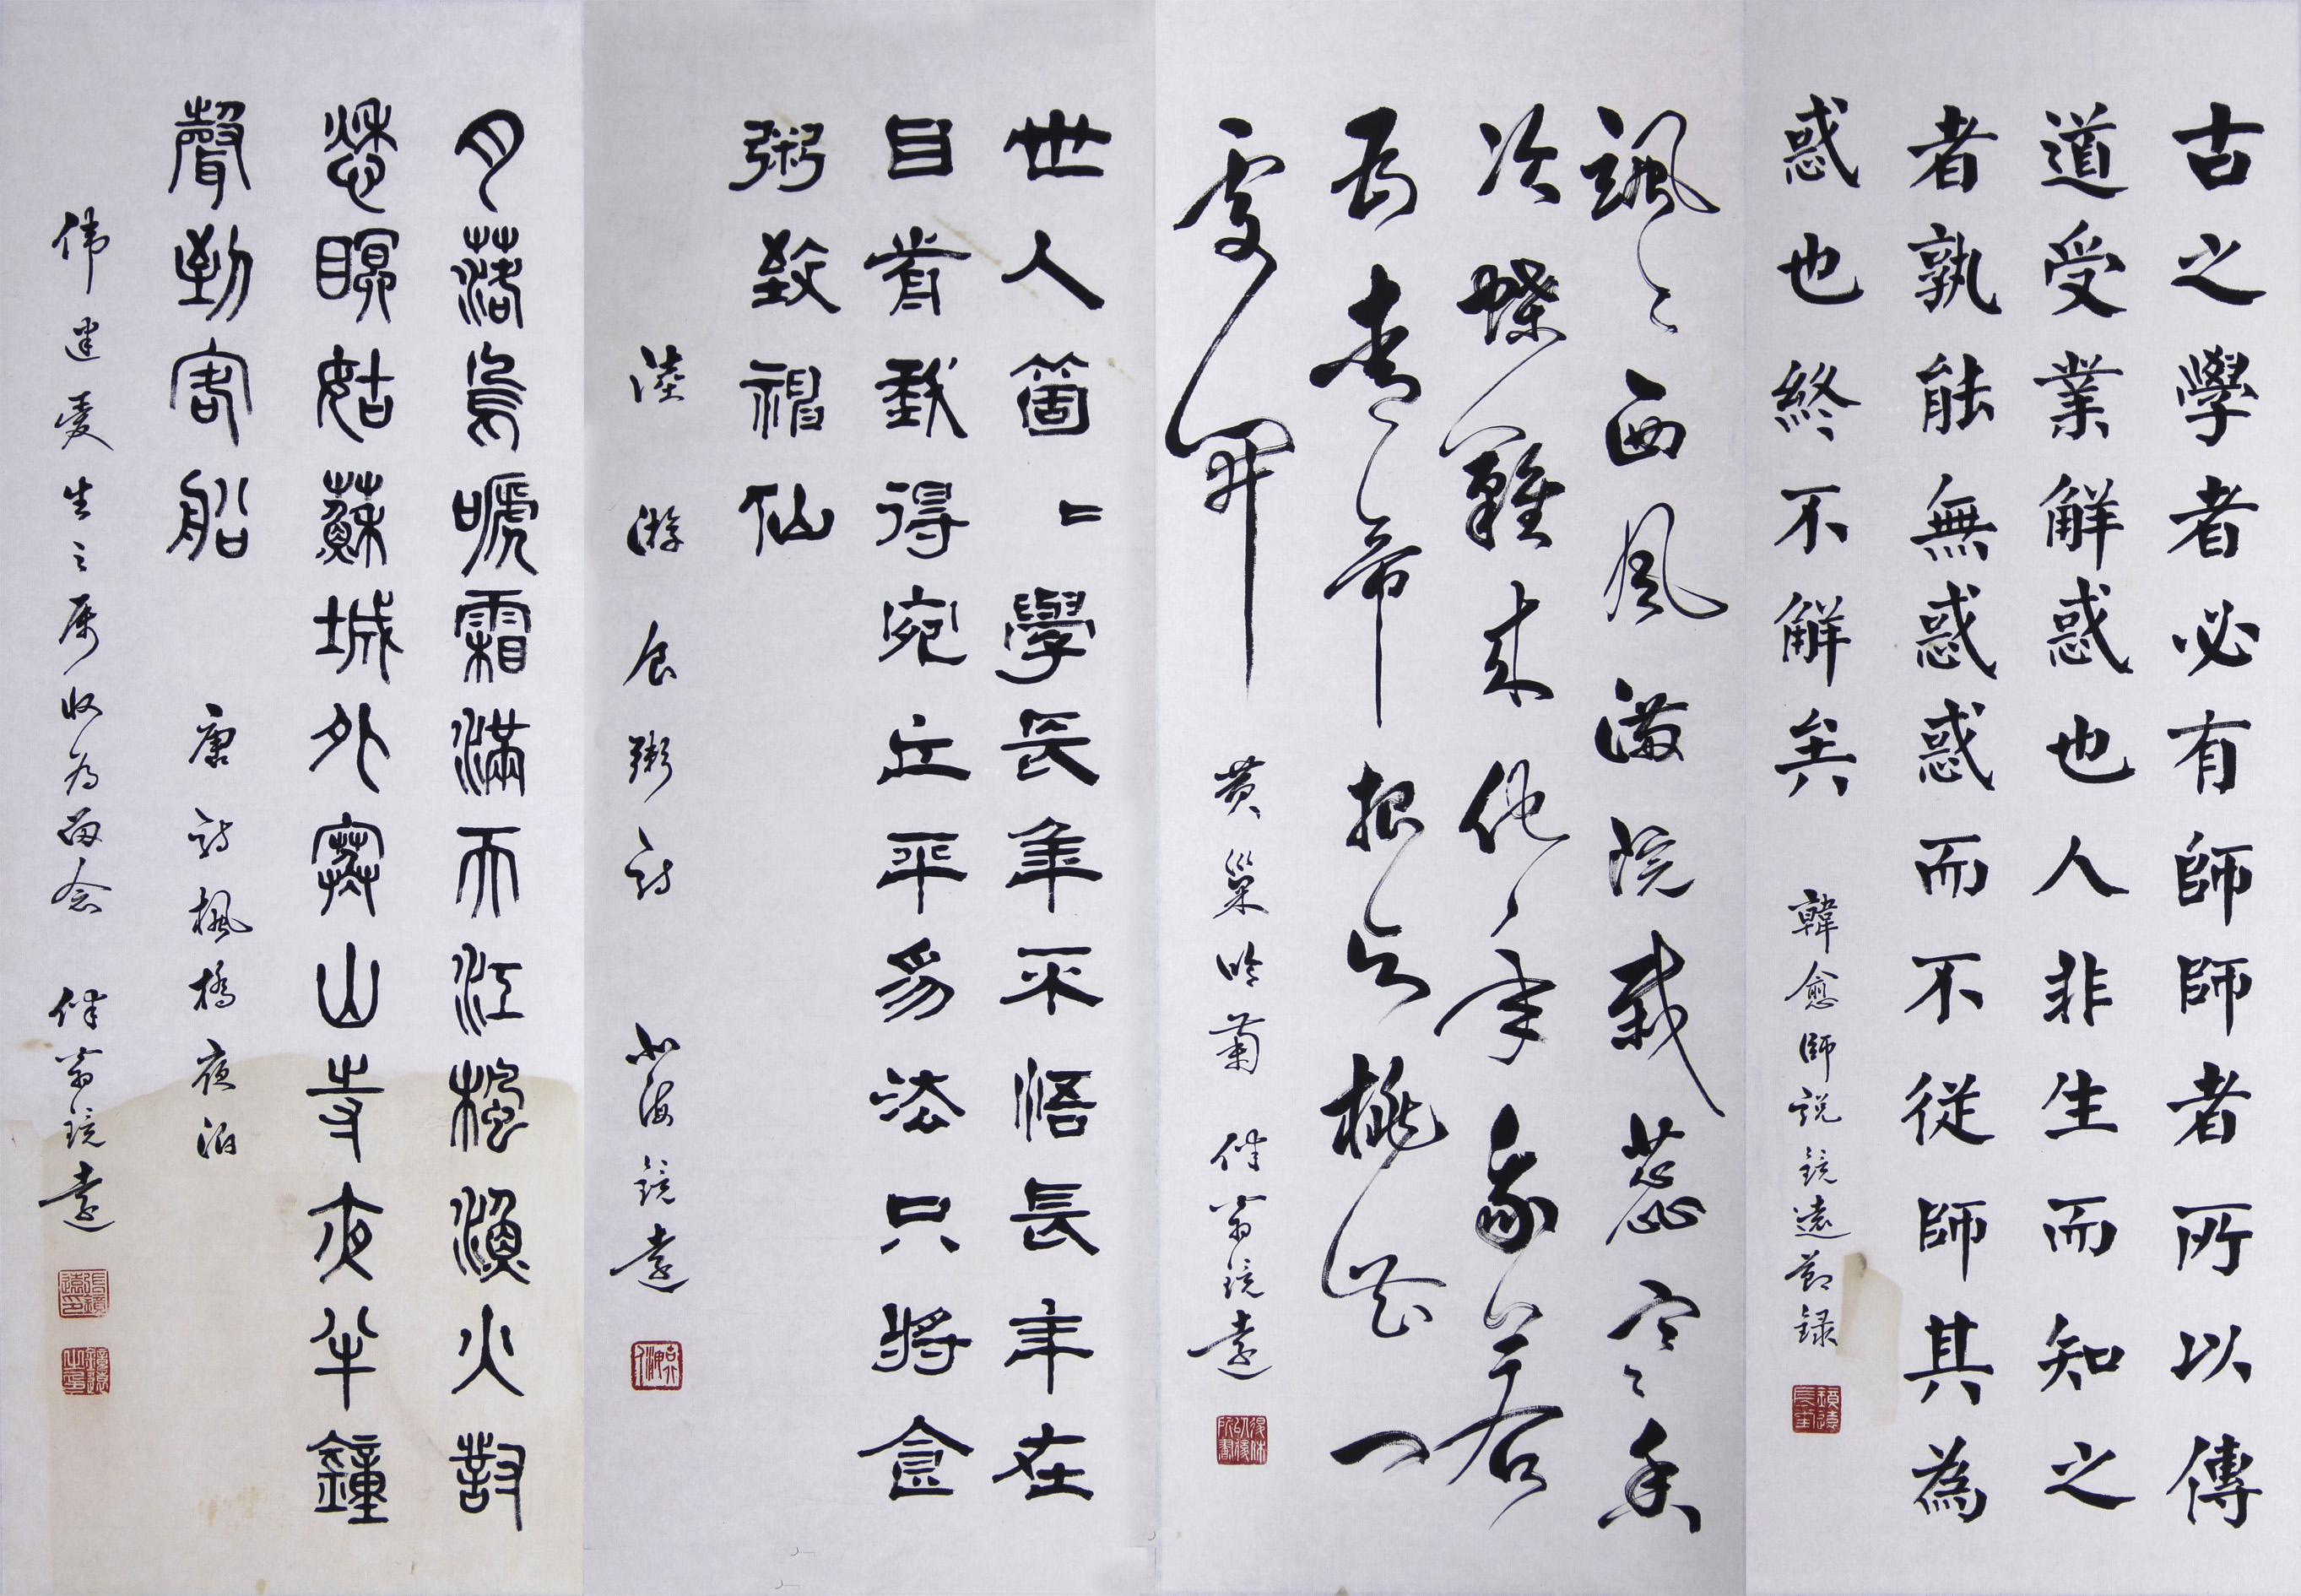 古之學者必有師師者所以傳
道受業解惑也人非生而知之
者孰能無惑惑而不從師其為
惑也終不解矣 韓愈師說鏡遠節録
颯〻西風滿院栽蕊寒香
冷蝶難來他年我若
為青帝報與桃花一
處開 黄巢吟菊 伴翁鏡遠
世人箇〻學長年不悟長年在
目前我得宛丘平易法只將食
粥致神仙
陸游食粥詩 北海鏡遠
月落烏嗁霜滿天江楓漁火對
愁瞑姑蘇城外寒山寺夜半鐘
聲到客船 唐詩楓橋夜泊
伟建爱生之属收为留念 伴翁鏡遠
張鏡遠印